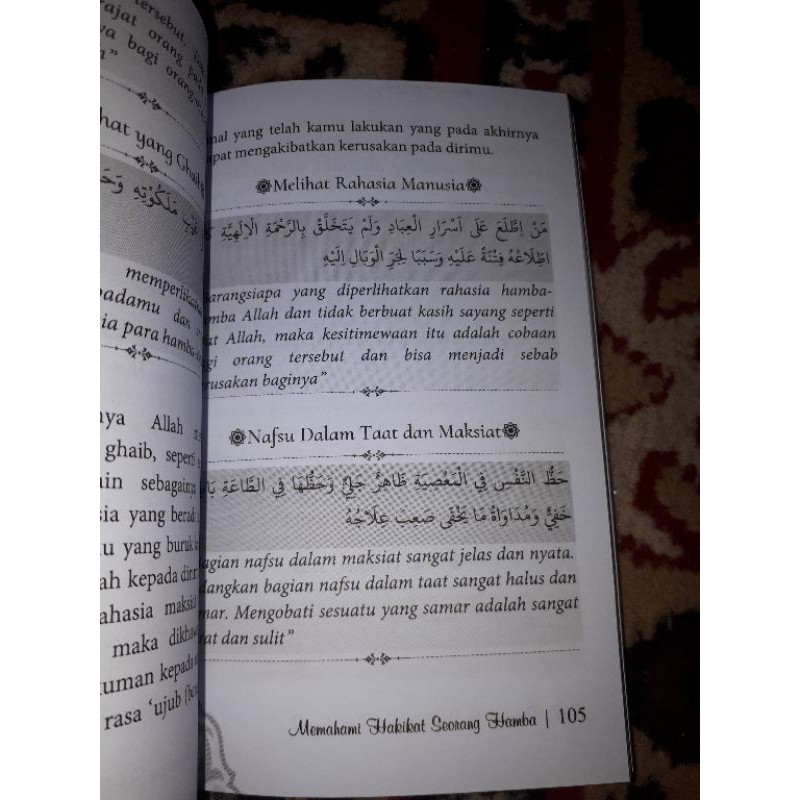 tersebut.
rajat orang pada
ya bagi orang
hat yang Ghaib
مَلَكُوْتِهِ
memperlihatkan
padamu dan
sia para hamba-
nya Allah
ghaib, seperti
ain sebagainya
sia yang berada
u yang buruk
ah kepada
ahasia maksiat
maka
uman kepada
rasa ‘ujub
mal yang telah kamu lakukan yang pada akhirnya
apat mengakibatkan kerusakan pada dirimu.
Melihat Rahasia Manusia
مَنْ اِطَّلَعَ عَلَى اَسْرَارِ الْعِبَادِ وَلَمْ يَتَخَلَّقْ بِالرَّحْمَةِ الْاِلٰهِيَّةِ
اِطِّلَاعُهُ فِتْنَةً عَلَيْهِ وَسَبَبًا لِجَرِّ الْوَبَالِ اِلَيْهِ
arangsiapa yang diperlihatkan rahasia hamba-
mba Allah dan tidak berbuat kasih sayang seperti
at Allah, maka kesitimewaan itu adalah cobaan
agi orang tersebut dan bisa menjadi sebab
erusakan baginya”
Nafsu Dalam Taat dan Maksiat
حَظُّ النَّفْسِ فِي الْمَعْصِيَةِ ظَاهِرٌ جَلِيٌّ وَحَظُّهَا فِي الطَّاعَةِ
خَفِيٌّ وَمُدَاوَاةُ مَا يَخْفَى صَعِبَ عِلَاجُهُ
agian nafsu dalam maksiat sangat jelas dan nyata.
dangkan bagian nafsu dalam taat sangat halus dan
mar. Mengobati sesuatu yang samar adalah sangat
rat dan sulit”
Memahami Hakikat Seorang Hamba | 105